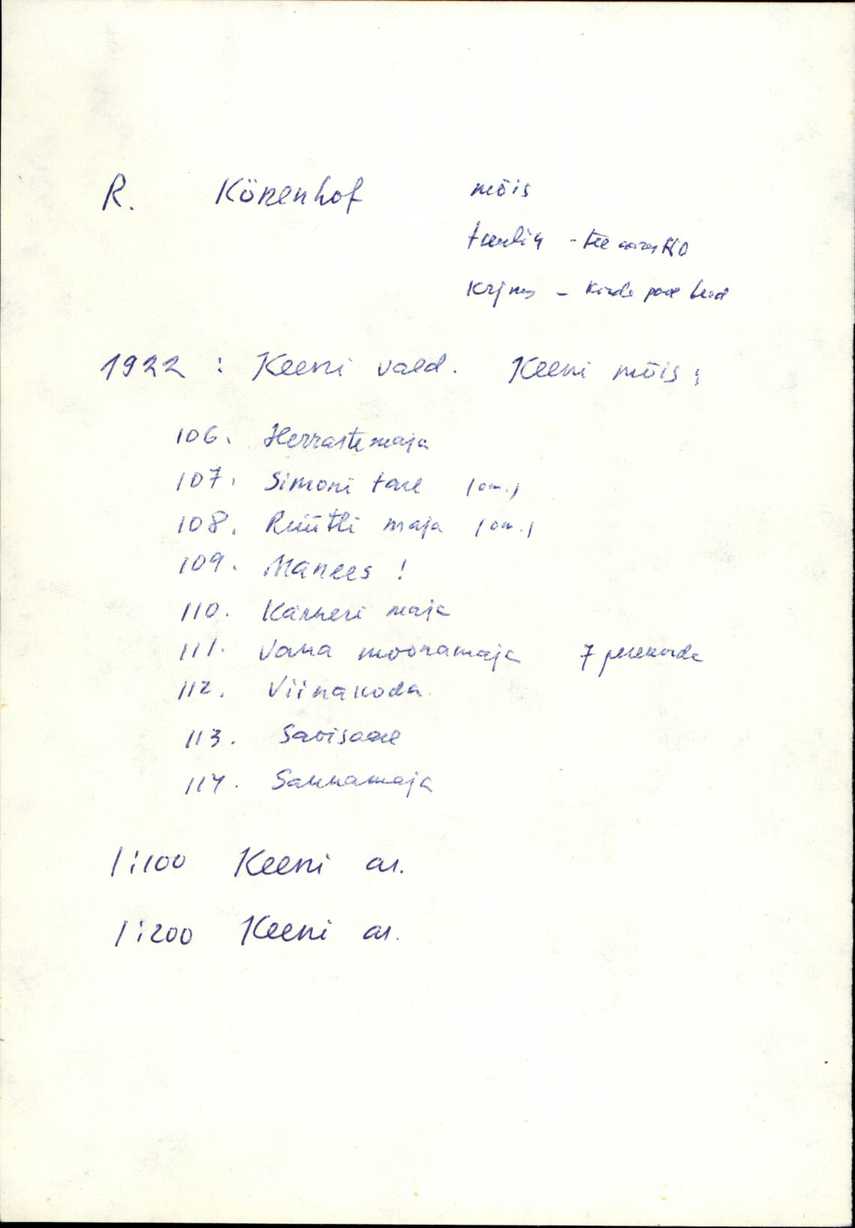 R. Könenhof mõis
tuulik - tee
Krjms - poole
1922 : Keeni vald. Keeni mõis :
106. Herrastemaja
107. Simoni tare (om.)
108. Rüütli maja (om.)
109. Manees !
110. Kärneri maja
111. Vana moonamaja 7 perekonda
112. Viinakoda.
113. Savisaare
114. Saunamaja
1:100 Keeni as.
1:200 Keeni as.